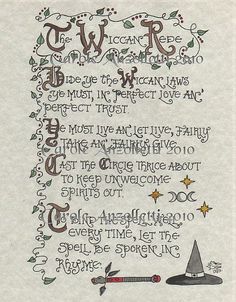 The Wiccan Rede
Carole Anzolletti 2010
Bide ye the Wiccan laws
ye must, in perfect love an'
perfect trust.
Carole Anzolletti 2010
Ye must live an' let live, fairly
take an' fairly give.
Cast the Circle thrice about
to keep unwelcome
spirits out.
Carole Anzolletti 2010
To bind the spell well
every time, let the
spell be spoken in
rhyme.